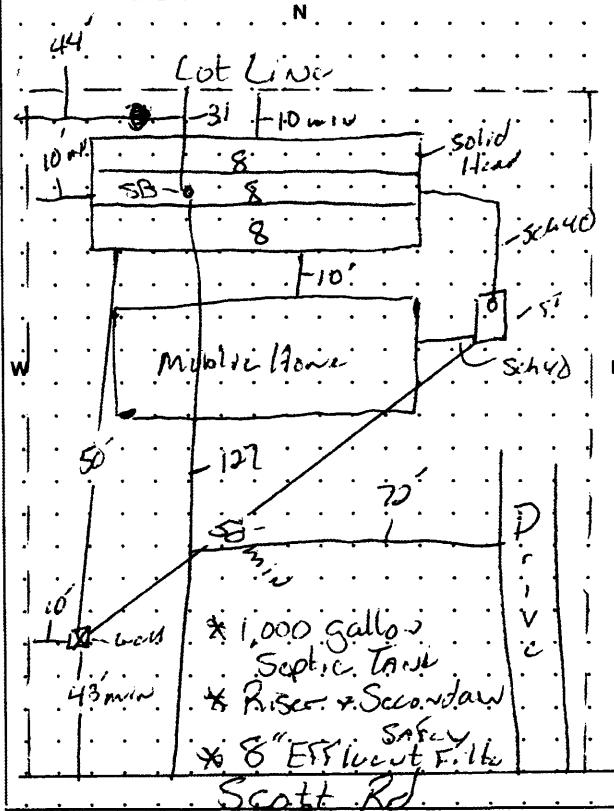 N
44'
Lot Line
31
10 min
Solid
Head
10' min
8
SB
8
8
Sch40
10'
5'
W
Mobile Home
Sch40
50'
127
70'
50'
min
Drive
10'
well
43' min
* 1,000 gallon
Septic Tank
* Riser & Secondary
Safety
* 8" Effluent Filter
Scott Rd